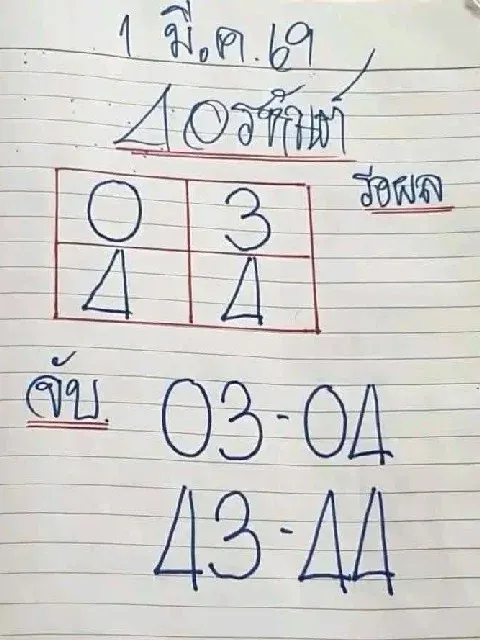 1 มี.ค.69
40รหันต์
รอผล
0 3
4 4
จับ 03-04
43-44